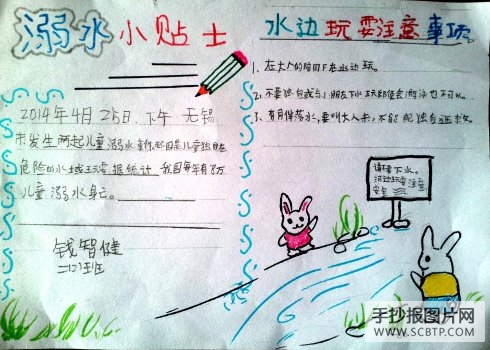 溺水小贴士
2014年4月25日下午无锡
市发生两起儿童溺水事件,起因是儿童独自在
危险的水域玩耍。据统计,我国每年有多万
儿童溺水身亡。
钱智健
二(2)班
水边玩耍注意事项
1、在大人的陪同下在水边玩。
2、不要独自或与小朋友下水玩耍
3、有同伴落水,要叫大人去,不能独自去
请不要下水。
河边玩耍注意
安全
手抄报图片网
WWW.SCBTP.COM